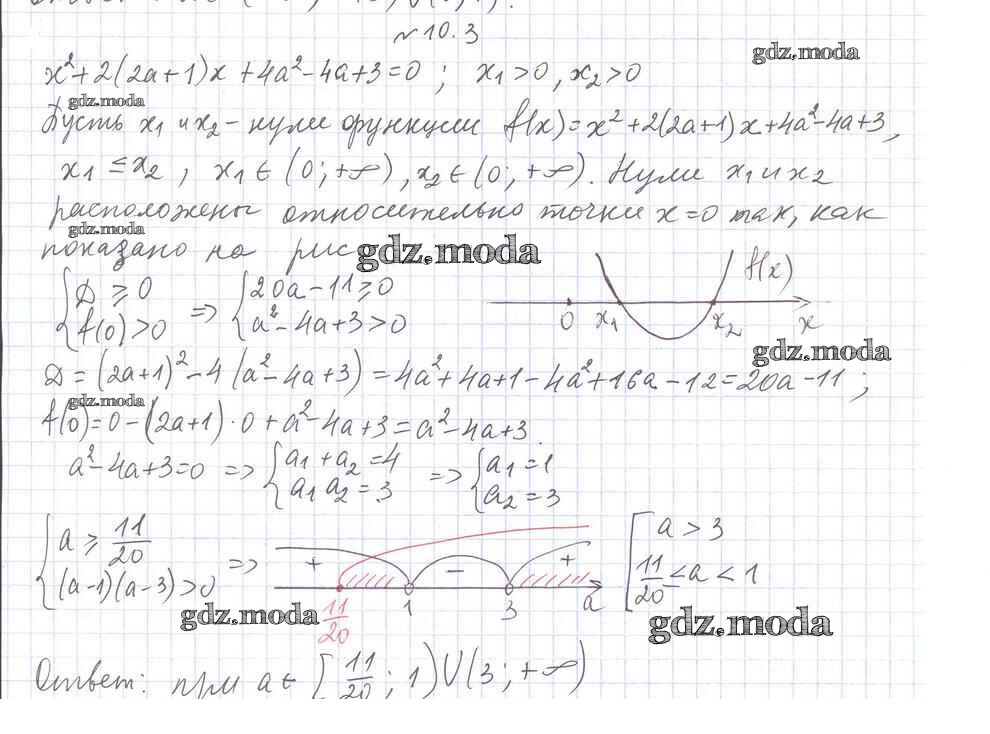 №10.3
gdz.moda
x²+2(2a+1)x+4a²-4a+3=0; x₁>0, x₂>0
gdz.moda
Пусть x₁ и x₂ - нули функции f(x)=x²+2(2a+1)x+4a²-4a+3,
x₁≤x₂, x₁∈(0;+∞), x₂∈(0;+∞). Нули x₁ и x₂
расположены относительно точки x=0 так, как
gdz.moda
показано на рис
gdz.moda
{D≥0 => {20a-11≥0
{f(0)>0 {a²-4a+3>0
f(x)
0 x₁ x₂ x
gdz.moda
D=(2a+1)²-4(a²-4a+3)=4a²+4a+1-4a²+16a-12=20a-11;
gdz.moda
f(0)=0-(2a+1)·0+a²-4a+3=a²-4a+3.
a²-4a+3=0 => {a₁+a₂=4 => {a₁=1
{a₁a₂=3 {a₂=3
{a≥11/20 =>
{(a-1)(a-3)>0
+ - +
11/20 1 3 a
[a>3
[11/20≤a<1
gdz.moda
gdz.moda
Ответ: при a∈[11/20;1)∪(3;+∞)